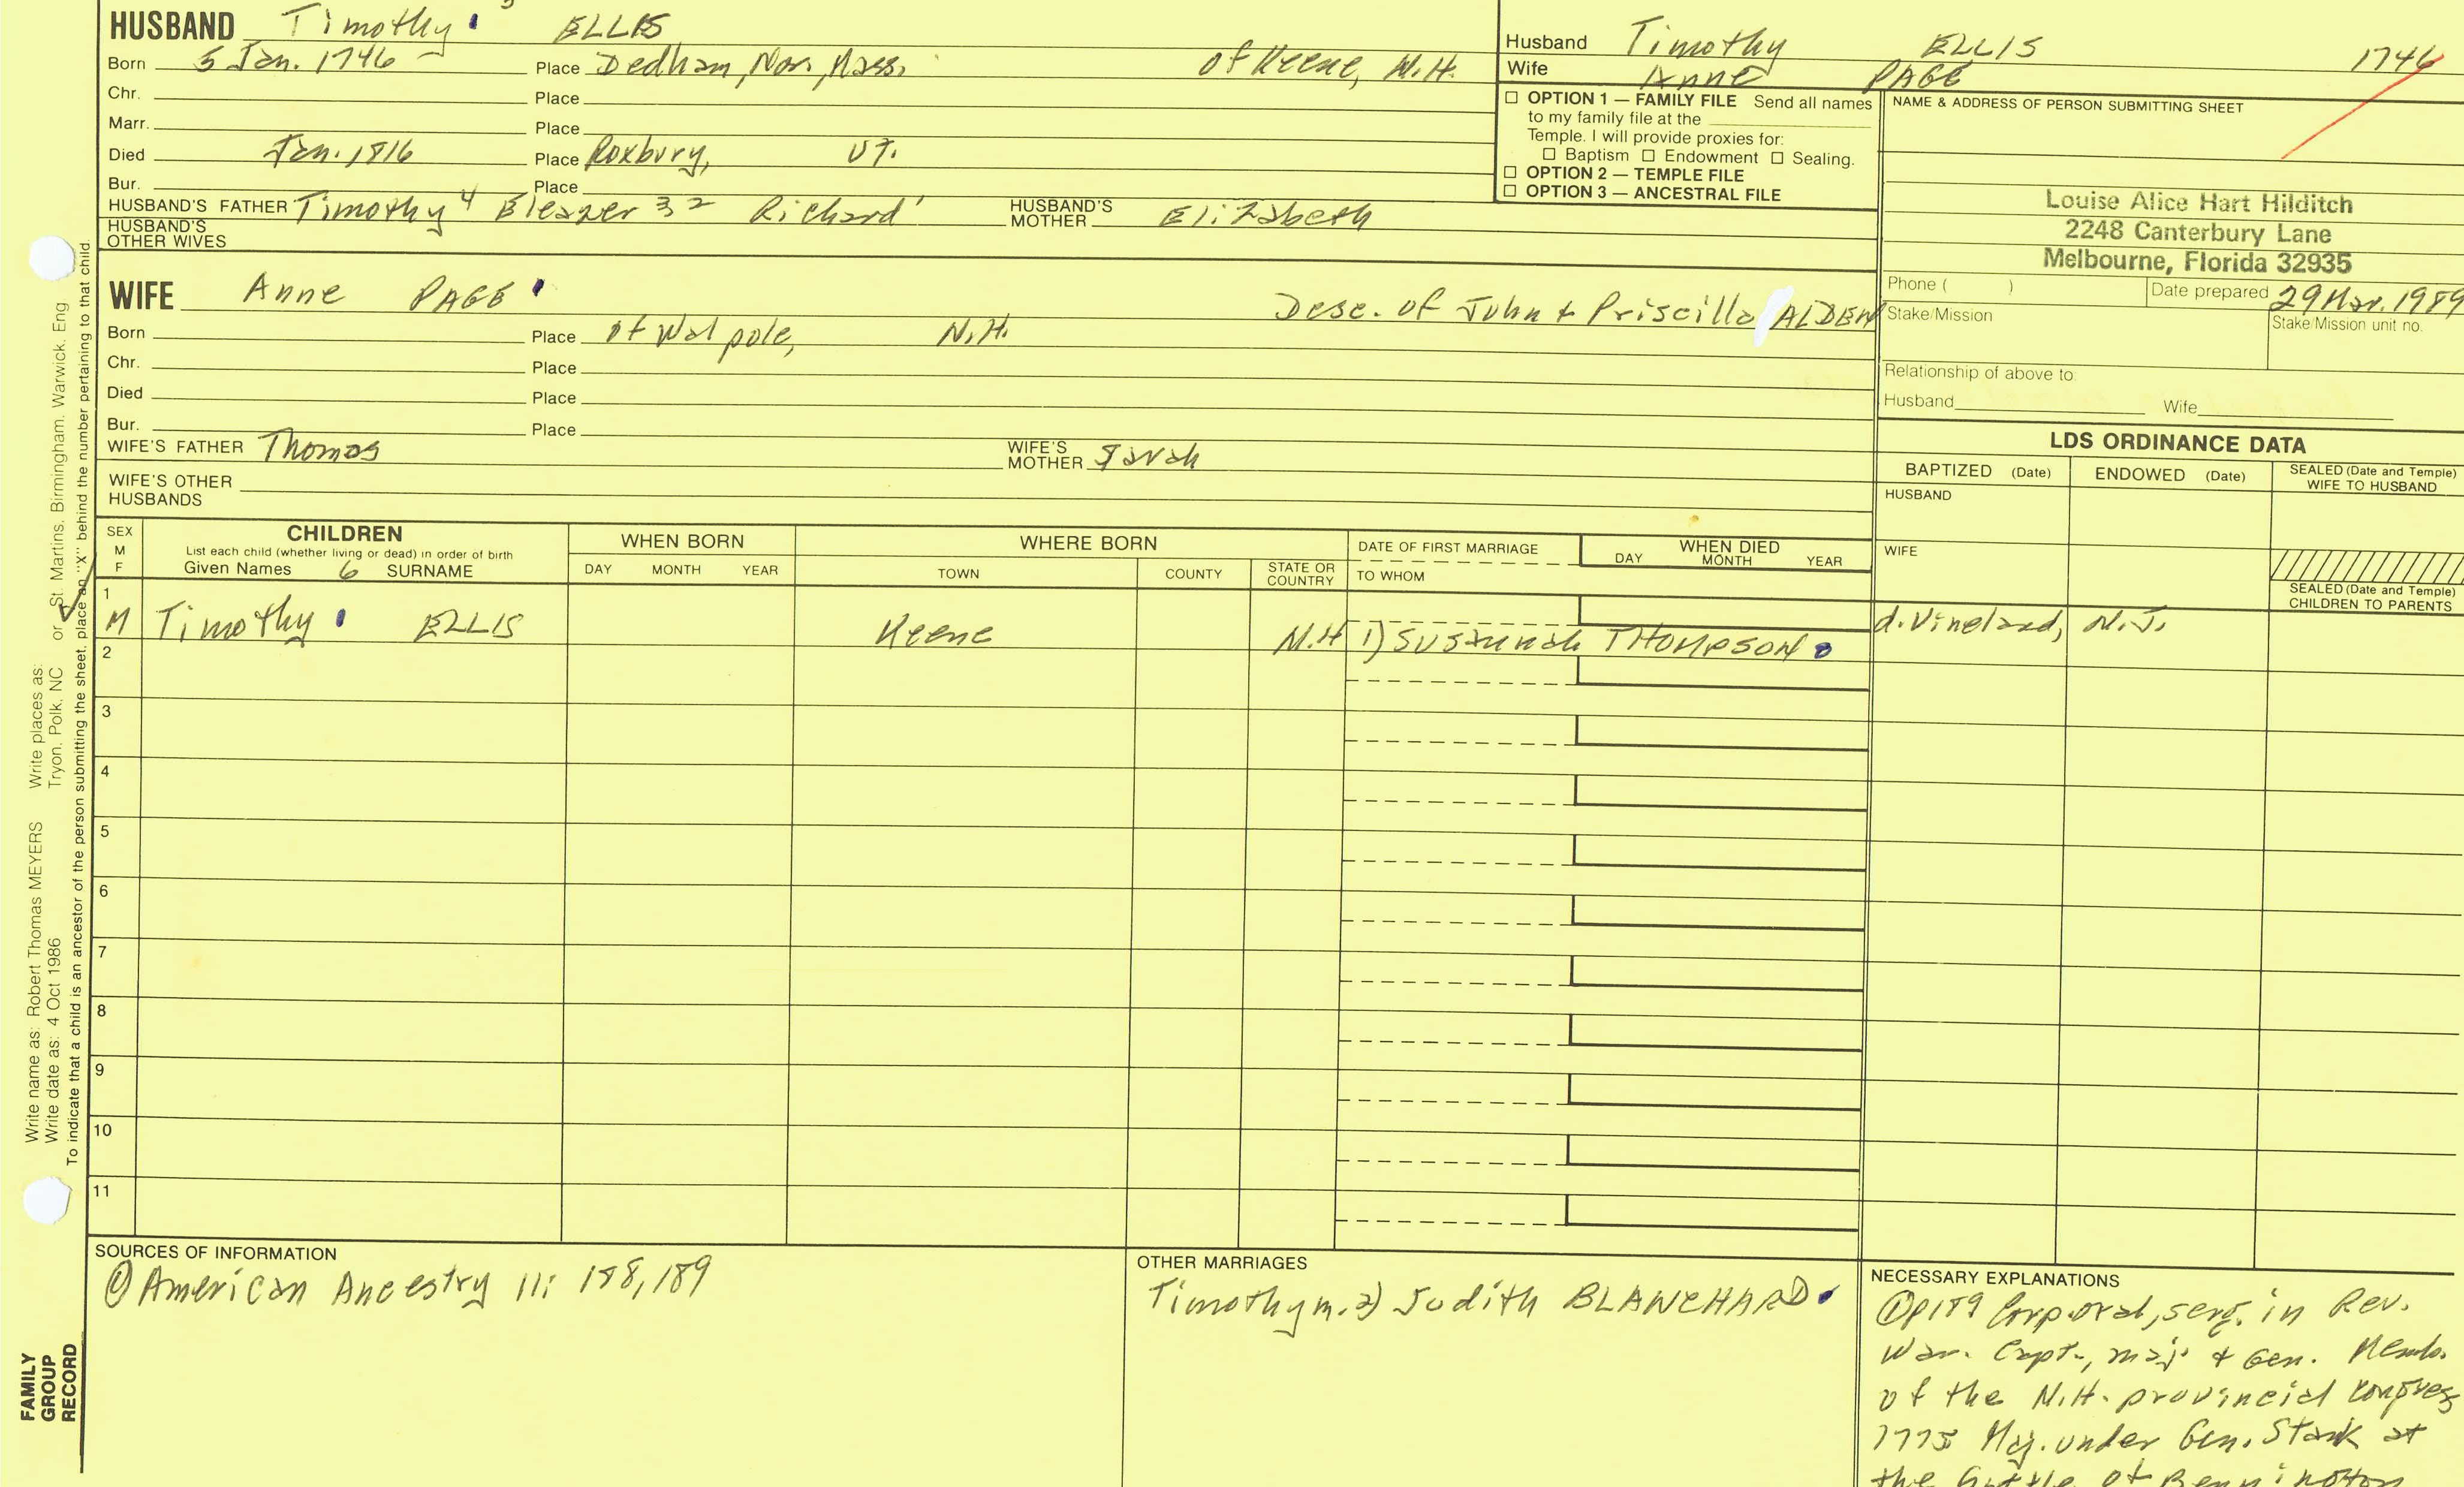 HUSBAND Timothy 5 ELLIS
Born 5 Jan. 1746 Place Dedham, Nor., Mass. of Keene, N.H.
Chr. Place
Marr. Place
Died Jan. 1816 Place Roxbury, VT.
Bur. Place
HUSBAND'S FATHER Timothy 4 Eleazer 3 2 Richard 1 HUSBAND'S MOTHER Elizabeth
HUSBAND'S OTHER WIVES
Husband Timothy ELLIS 1746
Wife Anne PAGE
☐ OPTION 1 — FAMILY FILE Send all names
to my family file at the
Temple. I will provide proxies for:
☐ Baptism ☐ Endowment ☐ Sealing.
☐ OPTION 2 — TEMPLE FILE
☐ OPTION 3 — ANCESTRAL FILE
NAME & ADDRESS OF PERSON SUBMITTING SHEET
Louise Alice Hart Hilditch
2248 Canterbury Lane
Melbourne, Florida 32935
Phone ( ) Date prepared 29 Mar. 1989
Stake/Mission Stake/Mission unit no.
Relationship of above to:
Husband Wife
WIFE Anne PAGE Desc. of John & Priscilla ALDEN
Born Place of Walpole, N.H.
Chr. Place
Died Place
Bur. Place
WIFE'S FATHER Thomas WIFE'S MOTHER Sarah
WIFE'S OTHER HUSBANDS
LDS ORDINANCE DATA
BAPTIZED (Date) ENDOWED (Date) SEALED (Date and Temple) WIFE TO HUSBAND
HUSBAND
WIFE
SEALED (Date and Temple) CHILDREN TO PARENTS
SEX M F
CHILDREN
List each child (whether living or dead) in order of birth
Given Names 6 SURNAME
WHEN BORN
DAY MONTH YEAR
WHERE BORN
TOWN COUNTY STATE OR COUNTRY
DATE OF FIRST MARRIAGE
TO WHOM
WHEN DIED
DAY MONTH YEAR
1
M Timothy ELLIS Keene N.H 1) Susannah THOMPSON d. Vineland, N.J.
2
3
4
5
6
7
8
9
10
11
SOURCES OF INFORMATION
① American Ancestry 11: 188, 189
OTHER MARRIAGES
Timothy m. 2) Judith BLANCHARD
NECESSARY EXPLANATIONS
① p189 Corporal, serg. in Rev.
War. Capt., maj. & Gen. Memb.
of the N.H. provincial congress
1775 Maj. under Gen. Stark at
the battle of Bennington
Write name as: Robert Thomas MEYERS Write places as:
Write date as: 4 Oct 1986 Tryon, Polk, NC or St. Martins, Birmingham, Warwick, Eng
To indicate that a child is an ancestor of the person submitting the sheet, place an "X" behind the number pertaining to that child.
FAMILY
GROUP
RECORD